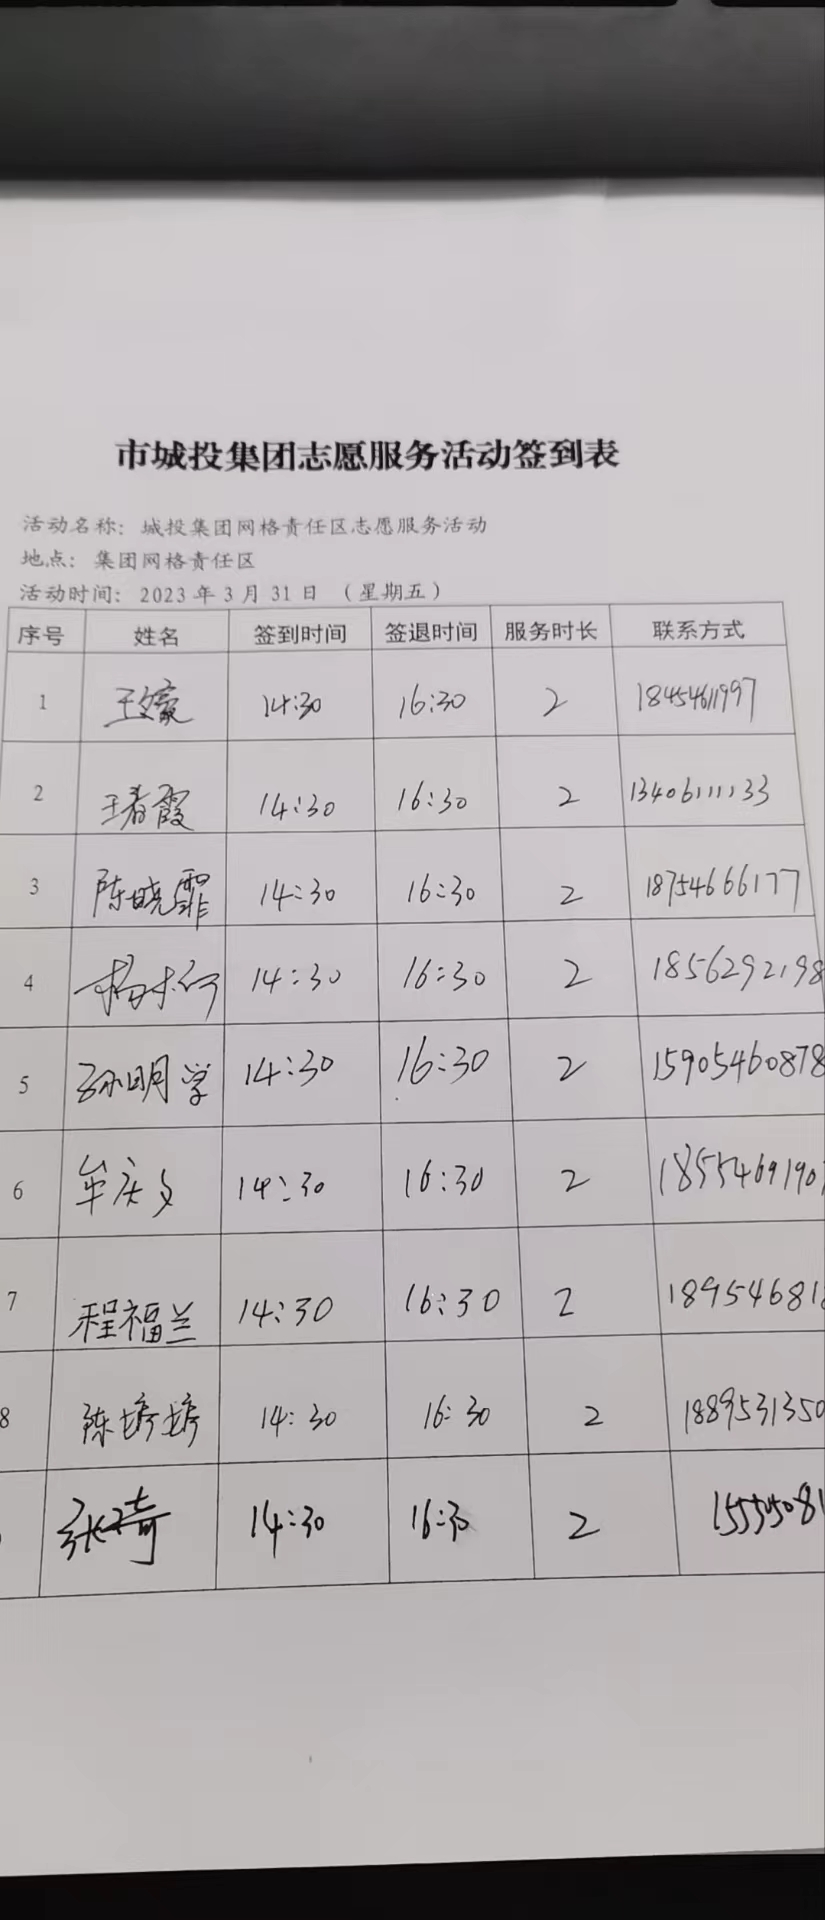 市城投集团志愿服务活动签到表
活动名称：城投集团网格责任区志愿服务活动
地点：集团网格责任区
活动时间：2023年3月31日（星期五）
序号 姓名 签到时间 签退时间 服务时长 联系方式
1 王文豪 14:30 16:30 2 18454611997
2 王春霞 14:30 16:30 2 13406111133
3 陈晓霏 14:30 16:30 2 18754666177
4 14:30 16:30 2 1856292198
5 孙明学 14:30 16:30 2 15905460878
6 牟庆文 14:30 16:30 2 1855469190
7 程福兰 14:30 16:30 2 189546818
8 陈婷婷 14:30 16:30 2 1889531350
张琦 14:30 16:30 2